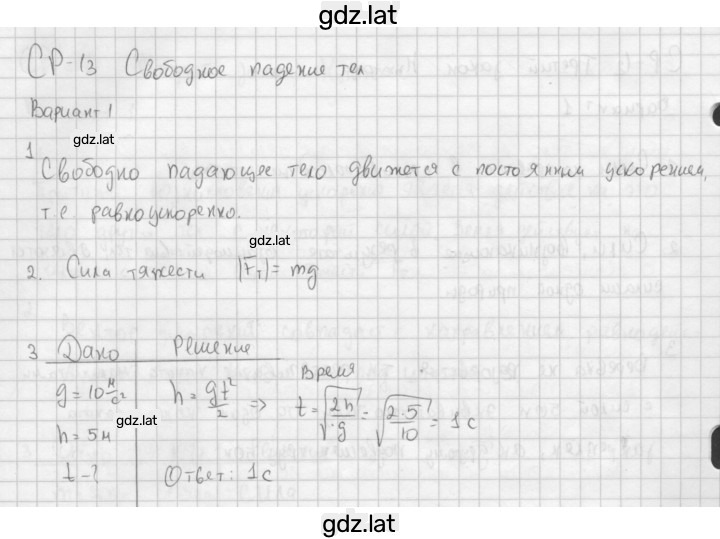 gdz.lat
СР-13 Свободное падение тел
Вариант 1
gdz.lat
1 Свободно падающее тело движется с постоянным ускорением,
т.е. равноускоренно.
gdz.lat
2. Сила тяжести |F̅т| = mg
3 Дано Решение
g = 10 м/с²
h = 5м
t - ?
h = gt²/2 => Время t = √(2h/g) = √(2·5/10) = 1 с
gdz.lat
Ответ: 1с
gdz.lat